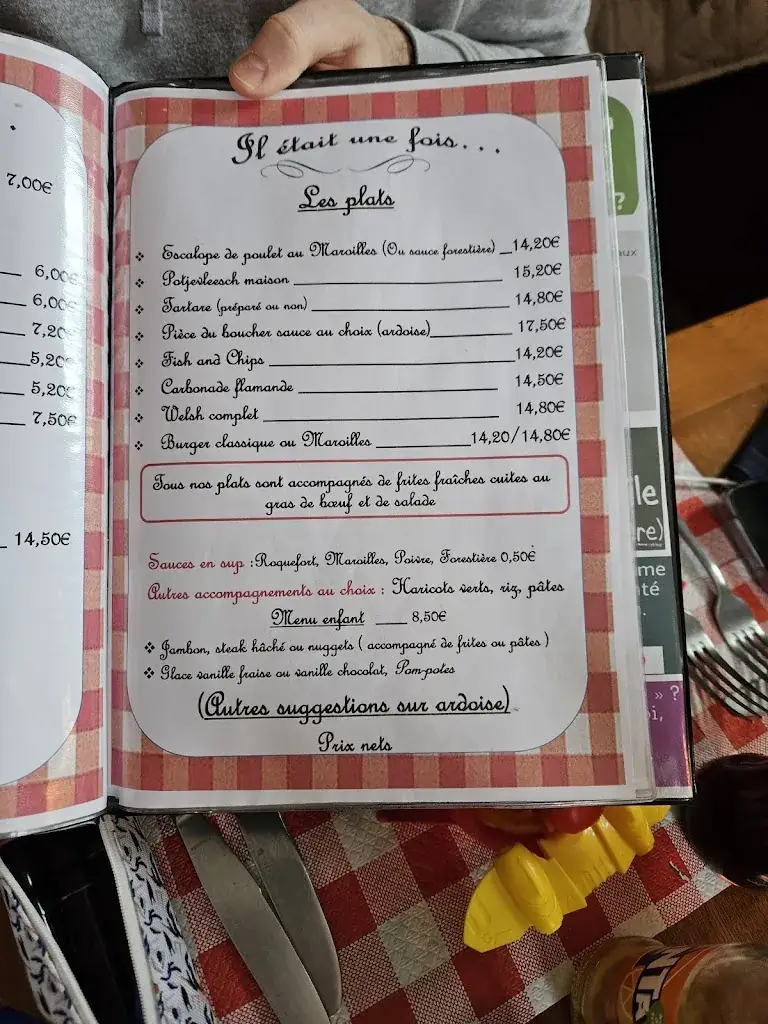 7,00€
6,00€
6,00€
7,20€
5,20€
5,20€
7,50€
14,50€
Il était une fois...
Les plats
Escalope de poulet au Maroilles (Ou sauce forestière) 14,20€
Potjevleesch maison 15,20€
Tartare (préparé ou non) 14,80€
Pièce du boucher sauce au choix (ardoise) 17,50€
Fish and Chips 14,20€
Carbonade flamande 14,50€
Welsh complet 14,80€
Burger classique ou Maroilles 14,20/14,80€
Tous nos plats sont accompagnés de frites fraîches cuites au
gras de bœuf et de salade
Sauces en sup : Roquefort, Maroilles, Poivre, Forestière 0,50€
Autres accompagnements au choix : Haricots verts, riz, pâtes
Menu enfant 8,50€
Jambon, steak hâché ou nuggets ( accompagné de frites ou pâtes )
Glace vanille fraise ou vanille chocolat, Pom-potes
(Autres suggestions sur ardoise)
Prix nets
?
aux
le
re)
me
té
» ?
oi,